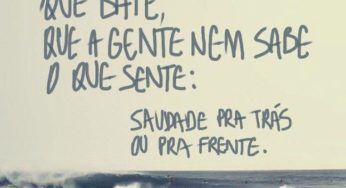 QUE BATE,
QUE A GENTE NEM SABE
O QUE SENTE:
SAUDADE PRA TRÁS
OU PRA FRENTE.